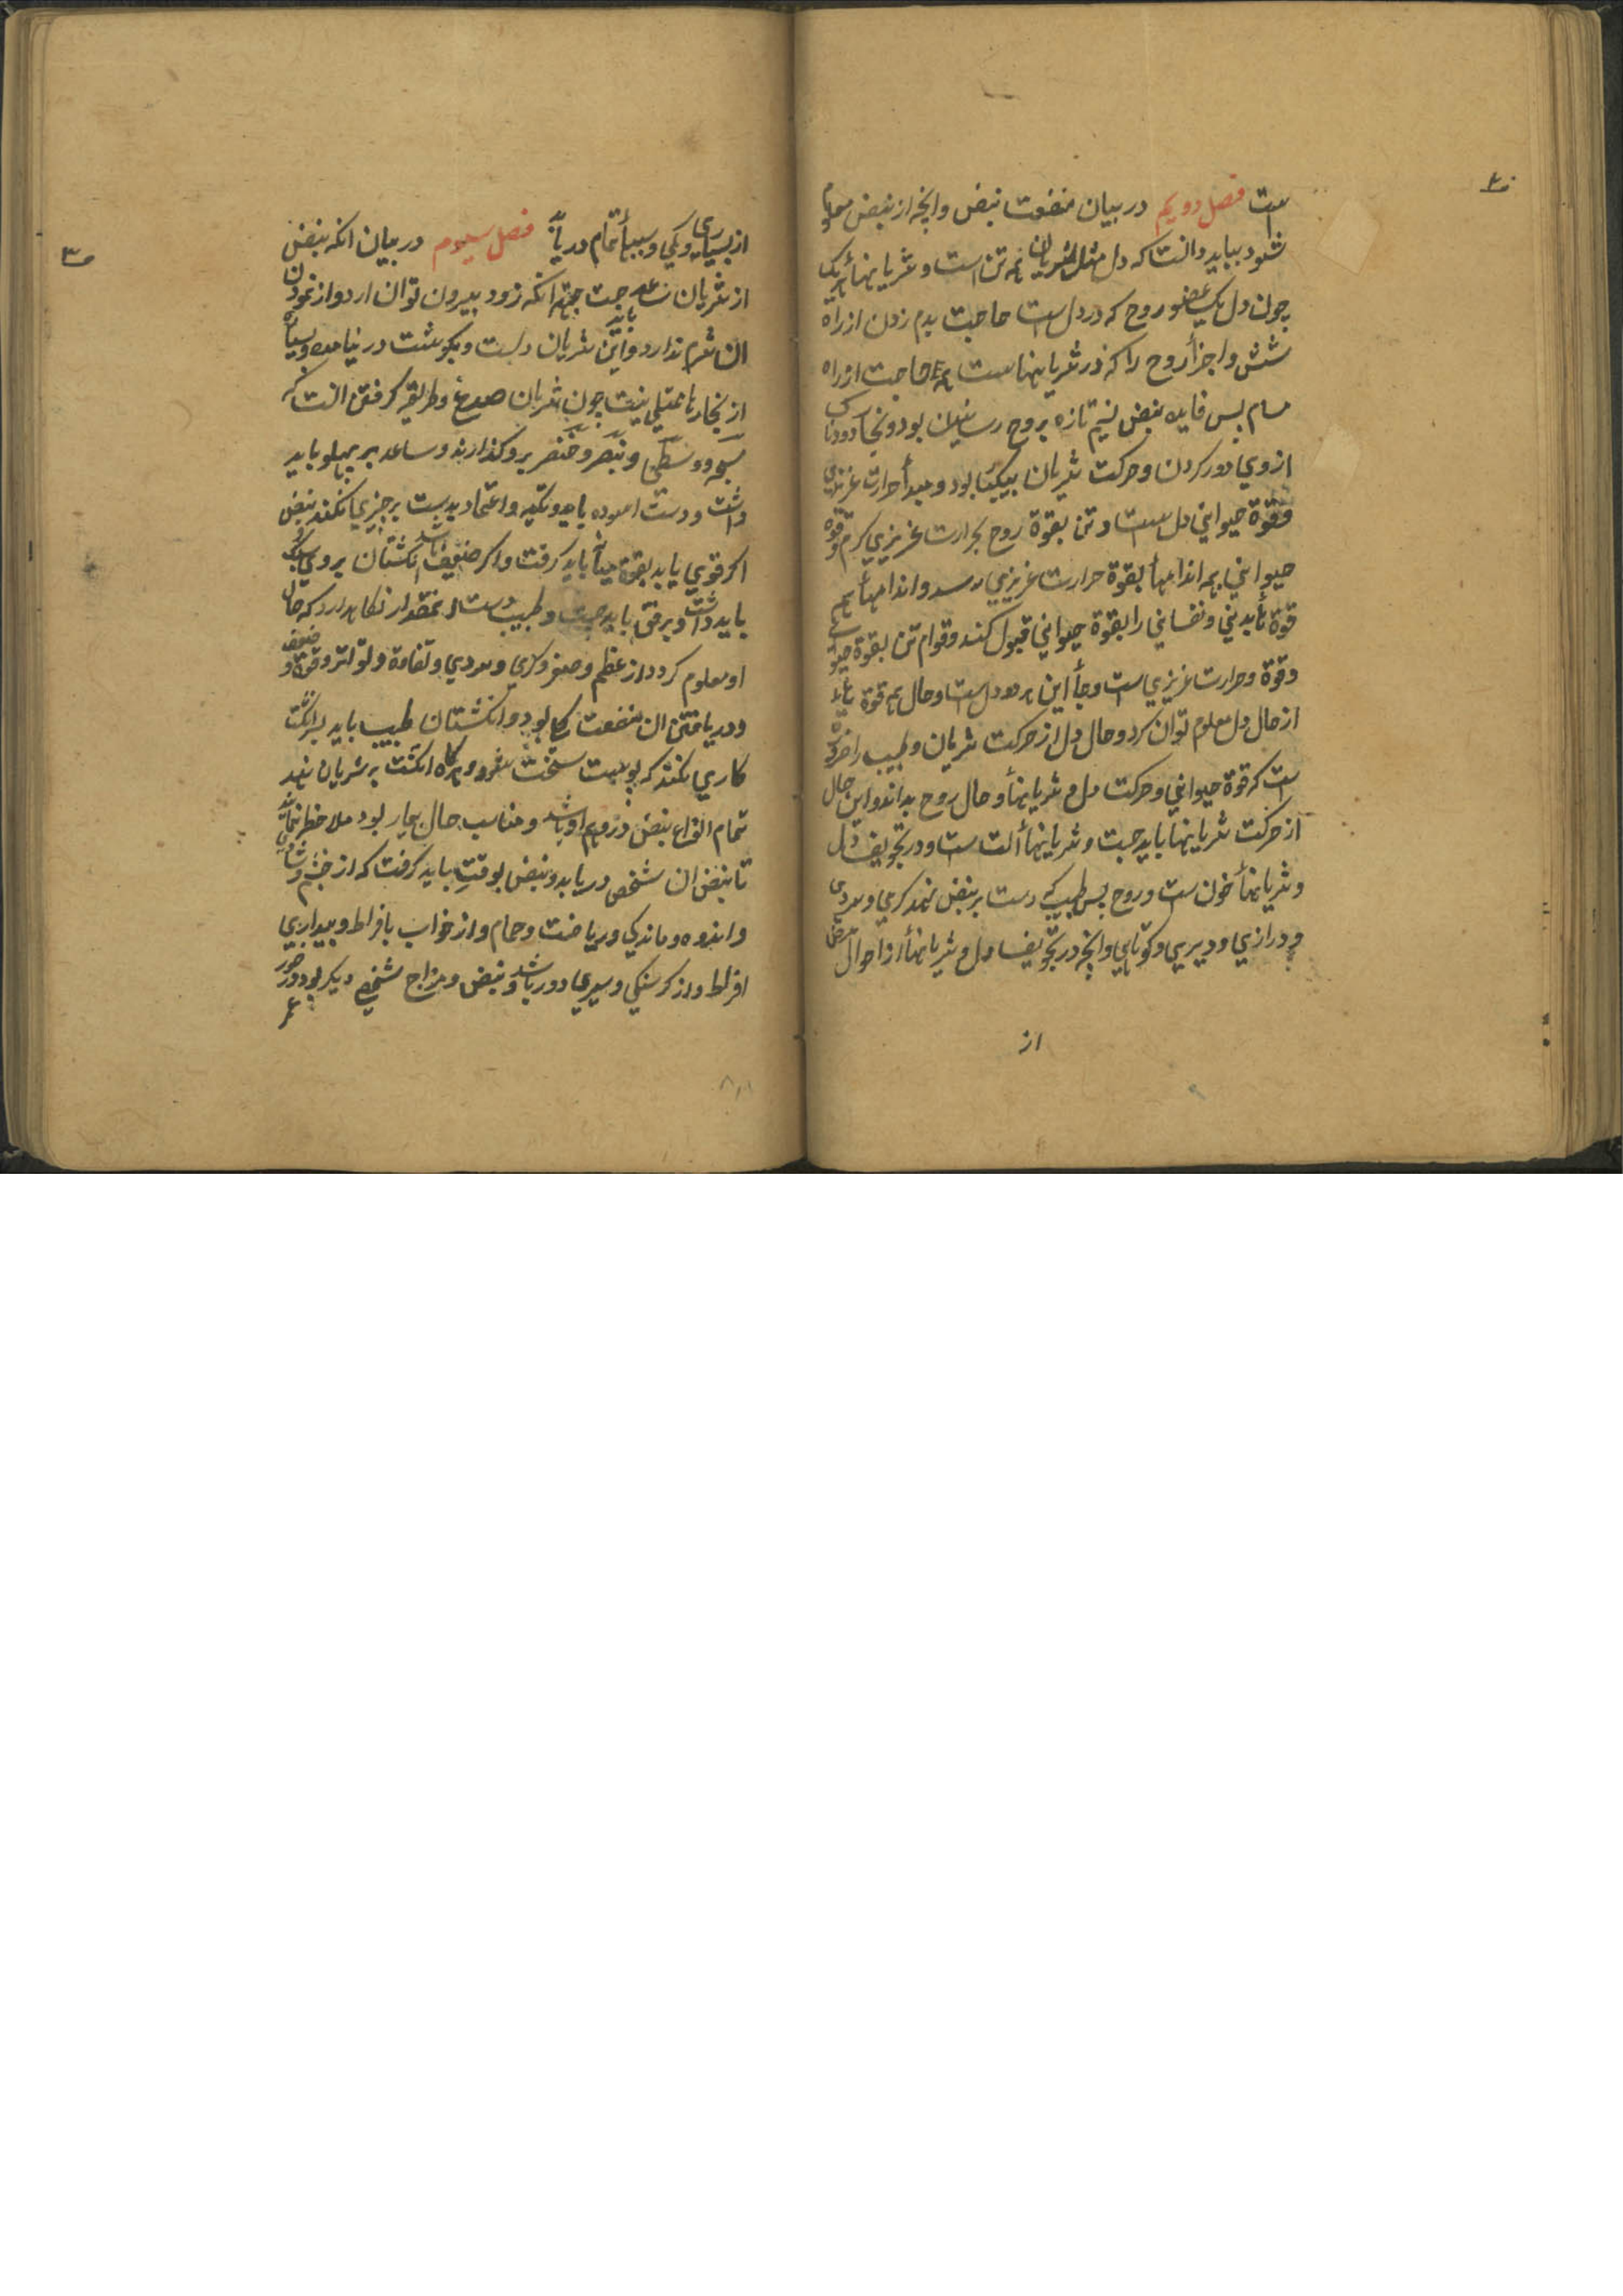 ۲
ست فصل دویم در بیان منفعت نبض وانچه از نبض معلوم
شود بباید دانست که دل مثل شریان همه تن است و شریانهأ هریک
چون دل یک عضو روح که در دل است حاجت بدم زدن از راه
شش واجزأ روح را که در شریانها ست همه حاجت از راه
مسام پس فایده نبض نسیم تازه بروح رسانیدن بود و بخار دودناک
ازوی دور کردن و حرکت شریان بیکبار بود و مبدأ حرارت غریزی
وقوة حیوانی دل است و تن بقوة روح بحرارت غریزی گرم وقوة
حیوانی بهمه اندامهأ بقوة حرارت غریزی رسد و اندامهأ همه
قوة تأبدنی ونفسانی را بقوة حیوانی قبول کنند وقوام تن بقوة حیوانی
وقوة وحرارت غریزی است وجأ این هر دو دل است وحال همه قوة هأ
از حال دل معلوم توان کرد وحال دل از حرکت شریان وطبیب را ضرورة
ست که قوة حیوانی وحرکت دل و شریانهأ وحال روح بداند واین حال
از حرکت شریانها باید جست و شریانهأ الت ست ودر تجویف دل
و شریانهأ خون ست و روح پس طبیب که دست بر نبض نهد گرمی و سردی
و درازی و دیری وکوتاهی وانچه در تجویف دل و شریانهأ از احوال مرض
از
۳
از بسیاری وکمی وسببهأ تمام دریابد فصل سیوم در بیان انکه نبض
از شریان ساعد جست جهة انکه زود بیرون توان ارد واز نمودن
ان شرم ندارد واین شریان باید دلست وبگوشت در نیامده وبسیار
از بخارها ممتلی نیست چون شریان صدغ وطریق گرفتن انست که
سبابه ووسطی وبنصر وخنصر برو گذارند وساعد بر پهلو باید
داشت ودست اسوده باید وتکیه واعتماد بدست بر چیزی نکند نبض
اگر قوی باید بقوة باید گرفت واگر ضعیف باشد انگشتان بروی سبک
باید داشت وبرفق باید جست وطبیب دست را بمقدار نگاهدارد که حال
او معلوم گردد از عظم وصغر وگرمی وسردی وتفاوة وتواتر وقوة وضعف
ودریافتن ان منفعت بکار بود وانگشتان طبیب باید بسرانگشت
کاری نکند که پوست سخت شود وهرگاه انگشت بر شریان نهد
تمام انواع نبض در وهم او باشد ومناسب حال بیمار بود ملاحظه نماید
تا نبض ان شخص دریابد ونبض بوقت باید گرفت که از خشم وشادی
واندوه وماندگی وریاضت وحمام واز خواب بافراط وبیداری
افراط واز گرسنگی وسیری دور باشد ونبض ومزاج شخصی دیگر بود ودر هر
عمر